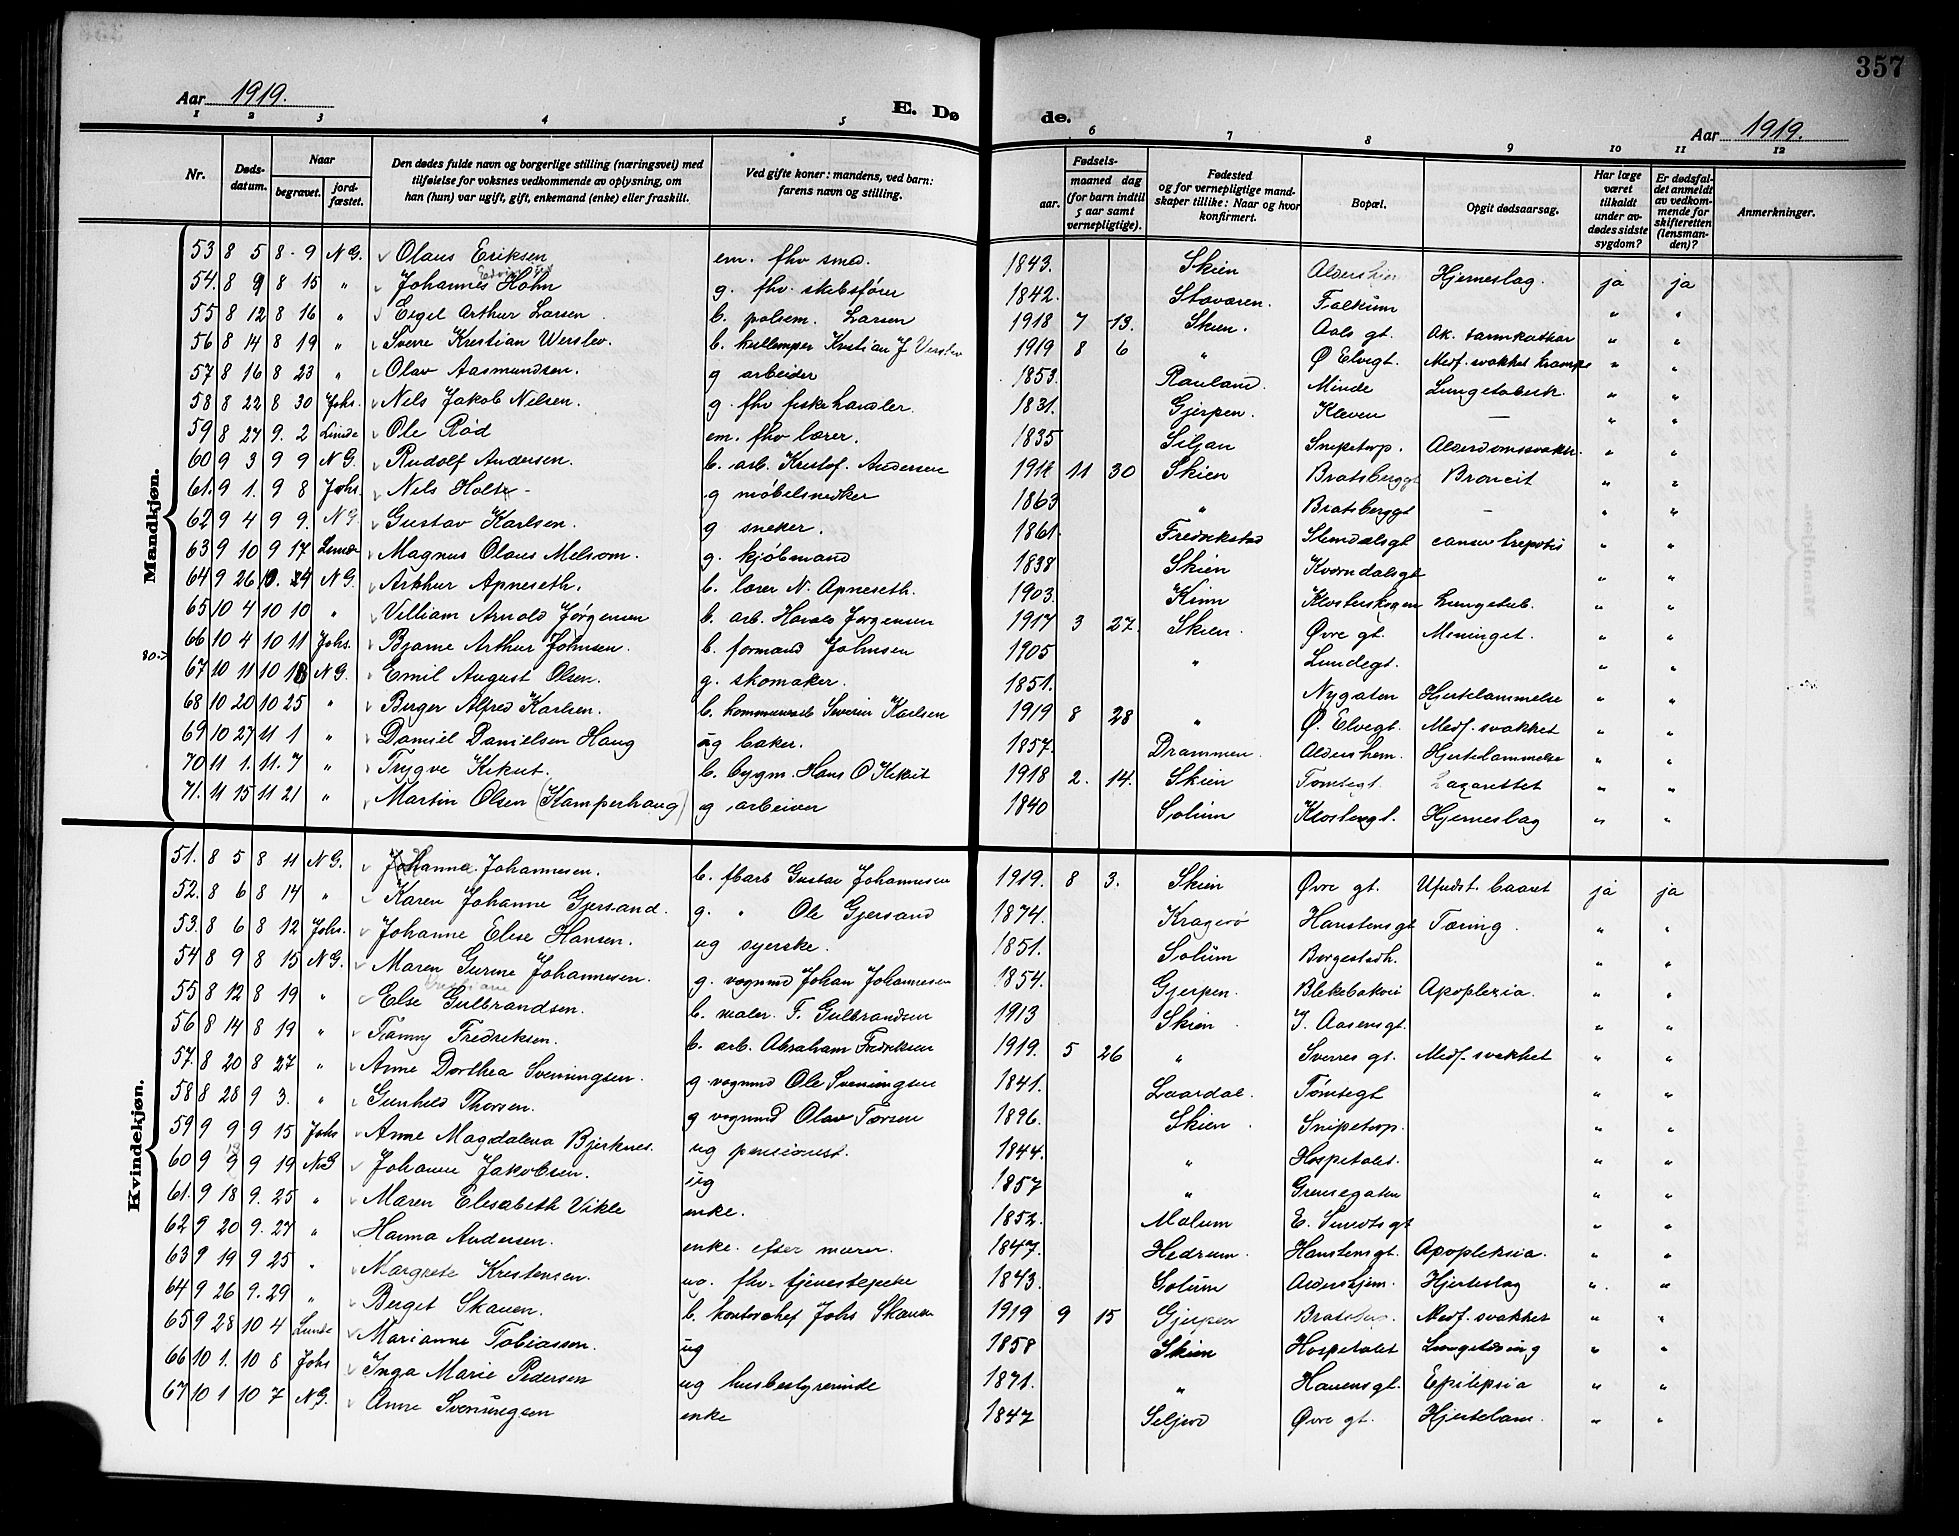 357
Aar 1919. E. Døde. Aar 1919.
1 2 3 4 5 6 7 8 9 10 11 12
Nr. Dødsdatum. Naar begravet. jordfæstet. Den dødes fulde navn og borgerlige stilling (næringsvei) med tilføielse for voksnes vedkommende av oplysning, om han (hun) var ugift, gift, enkemand (enke) eller fraskilt. Ved gifte koner: mandens, ved barn: farens navn og stilling. Fødsels- aar. maaned dag (for barn indtil 5 aar samt vernepligtige). Fødested og for vernepligtige mandskaper tillike: Naar og hvor konfirmert. Bopæl. Opgit dødsaarsag. Har læge været tilkaldt under avdødes sidste sygdom? Er dødsfaldet anmeldt av vedkommende for skifteretten (lensmanden)? Anmerkninger.
Mandkjøn.
53 8 5 8 9 N G. Olaus Eriksen em. fhv smed. 1843. Skien Aldershjem Hjerneslag. ja ja
54. 8 9 8 15 " Johannes Høhn g. fhv. skibsfører 1842. Stoværen. Falkum " "
55 8 12 8 16 " Eigel Arthur Larsen b. polsem. Larsen 1918 7 13. Skien. Aals gt. Ak. tarmkatar " "
56 8 14 8 19 " Sverre Kristian Werslev b. kullemper Kristian J Verslev 1919 8 6 " Ø Elvegt. Medf. svakhet krampe " "
57 8 16 8 23 " Olav Aasmundsen. g arbeider 1853. Rauland. Minde Lungetuberk. " "
58 8 22 8 30 Johs. Nels Jakob Nelsen. g. fhv fiskehandler. 1831. Gjerpen. Kleven — " "
59 8 27 9. 2 Lunde Ole Rød em. fhv lærer. 1835 Siljan Snipetorp. Alderdomssvakh. " "
60 9 3 9 9 N G. Rudolf Andersen. b. arb. Kristof. Andersen 1918 11 30 Skien Bratsberggt Broncit " "
61. 9 1. 9 8 Johs. Nels Holte g møbelsnedker 1863 " Bratsberggt — " "
62 9 4 9 9. N G. Gustav Karlsen. g sneker. 1861. Fredrikstad Stendalsgt cancer hepatis " "
63 9 10 9 17 Lunde Magnus Olaus Melsom. g. kjøbmand 1838 Skien Kverndalsgt " "
64 9 26 10. 24 N G. Arthur Apneseth. b. lærer N. Apneseth. 1903. Kinn Klosterskogen Lungetub. " "
65 10 4 10 10 " Villiam Arnold Jørgensen b. arb. Harald Jørgensen 1917 3 27. Skien. Øvre gt. Meninget. " "
66 10 4 10 11 Johs. Bjarne Arthur Johnsen. b. formand Johnsen 1905 " Lundegt. " "
80-> 67 10 11 10 18 N G. Emil August Olsen. g. skomaker. 1851. Nygaten Hjertelammelse
68 10 20 10 25 " Berger Alfred Karlsen. b. kommunearb Severin Karlsen 1919 8 28 " Ø. Elvegt. Medf. svakhet " "
69 10 27 11 1 " Daniel Danielsen Haug ug baker. 1857. Drammen. Aldershem. Hjertelammelse " "
70 11 1. 11. 7 " Trygve Kikut. b. bygm. Hans O Kikut 1918 2. 14. Skien Tomtegt. Lazarettet " "
71. 11 15 11 21 " Martin Olsen (Kamperhaug) g arbeider 1840 Solum Klostergt. Hjerneslag " "
Kvindekjøn.
51. 8 5 8 11 N G. Johanne Johannesen. b. fbarb Gustav Johannesen 1919. 8 3. Skien Øvre gt. Ufuldst. baaret ja ja
52. 8 6 8 14 " Karen Johanne Gjersand. g. " Ole Gjersand 1874. Kragerø Hansteensgt Tæring. " "
53. 8 6 8 12 Johs. Johanne Elise Hansen. ug syerske. 1851. Solum Borgestadh. " "
54 8 9 8 15 N G. Maren Gurine Johannesen. g. vognmd Johan Johannesen 1854. Gjerpen. Blekebakken Apoplexia. " "
55 8 12 8 19 " Else Gulbrandsen. b. maler. F. Gulbrandsen 1913 Skien. I. Aasensgt. " "
56 8 14 8 19 " Fanny Fredriksen. b. arb. Abraham Fredriksen 1919. 5 26 " Sverres gt. Medf. svakhet " "
57. 8 20 8 27 " Anne Dorthea Sveningsen. g vognmd Ole Sveningsen 1841. Laardal. Tomtegt " "
58 8 28 9 3. " Gunhild Thorsen. g vognmd Olav Torsen 1896. Skien. Snipetorp. " "
59 9 9 9 15 Johs Anne Magdalena Bjerknes. ug pensionist. 1844. " Hospitalet. " "
60 9 9 9 19 N G Johanne Jakobsen. ug 1857 " Grensegaten " "
61. 9 18 9. 25 " Maren Elisabeth Vikle enke. 1852. Molum E. Sundts gt " "
62 9 20 9. 27 " Hanna Andersen. enke. efter murer. 1847. Hedrum. Hansteensgt. Apopleksia. " "
63 9 19 9 25 " Margrete Kristensen. ug. fhv. tjenestepike 1843. Solum Aldershjem. Hjerteslag " "
64 9 26 9. 29 " Berget Skauen. b. kontorchef Johs Skauen 1919 9 15 Gjerpen Bratsberg. Medf. svakhet " "
65 9 28 10 4 Lunde Marianne Tobiassen. ug 1858 Skien Hospitalet Lungetæring " "
66 10 1. 10 8 Johs Inga Marie Pedersen ug husbestyrerinde 1871. " Hauensgt. Epilepsia " "
67 10 1 10 7 N G. Anne Sveningsen enke 1847 Seljord Øvre gt. Hjertelam. " "